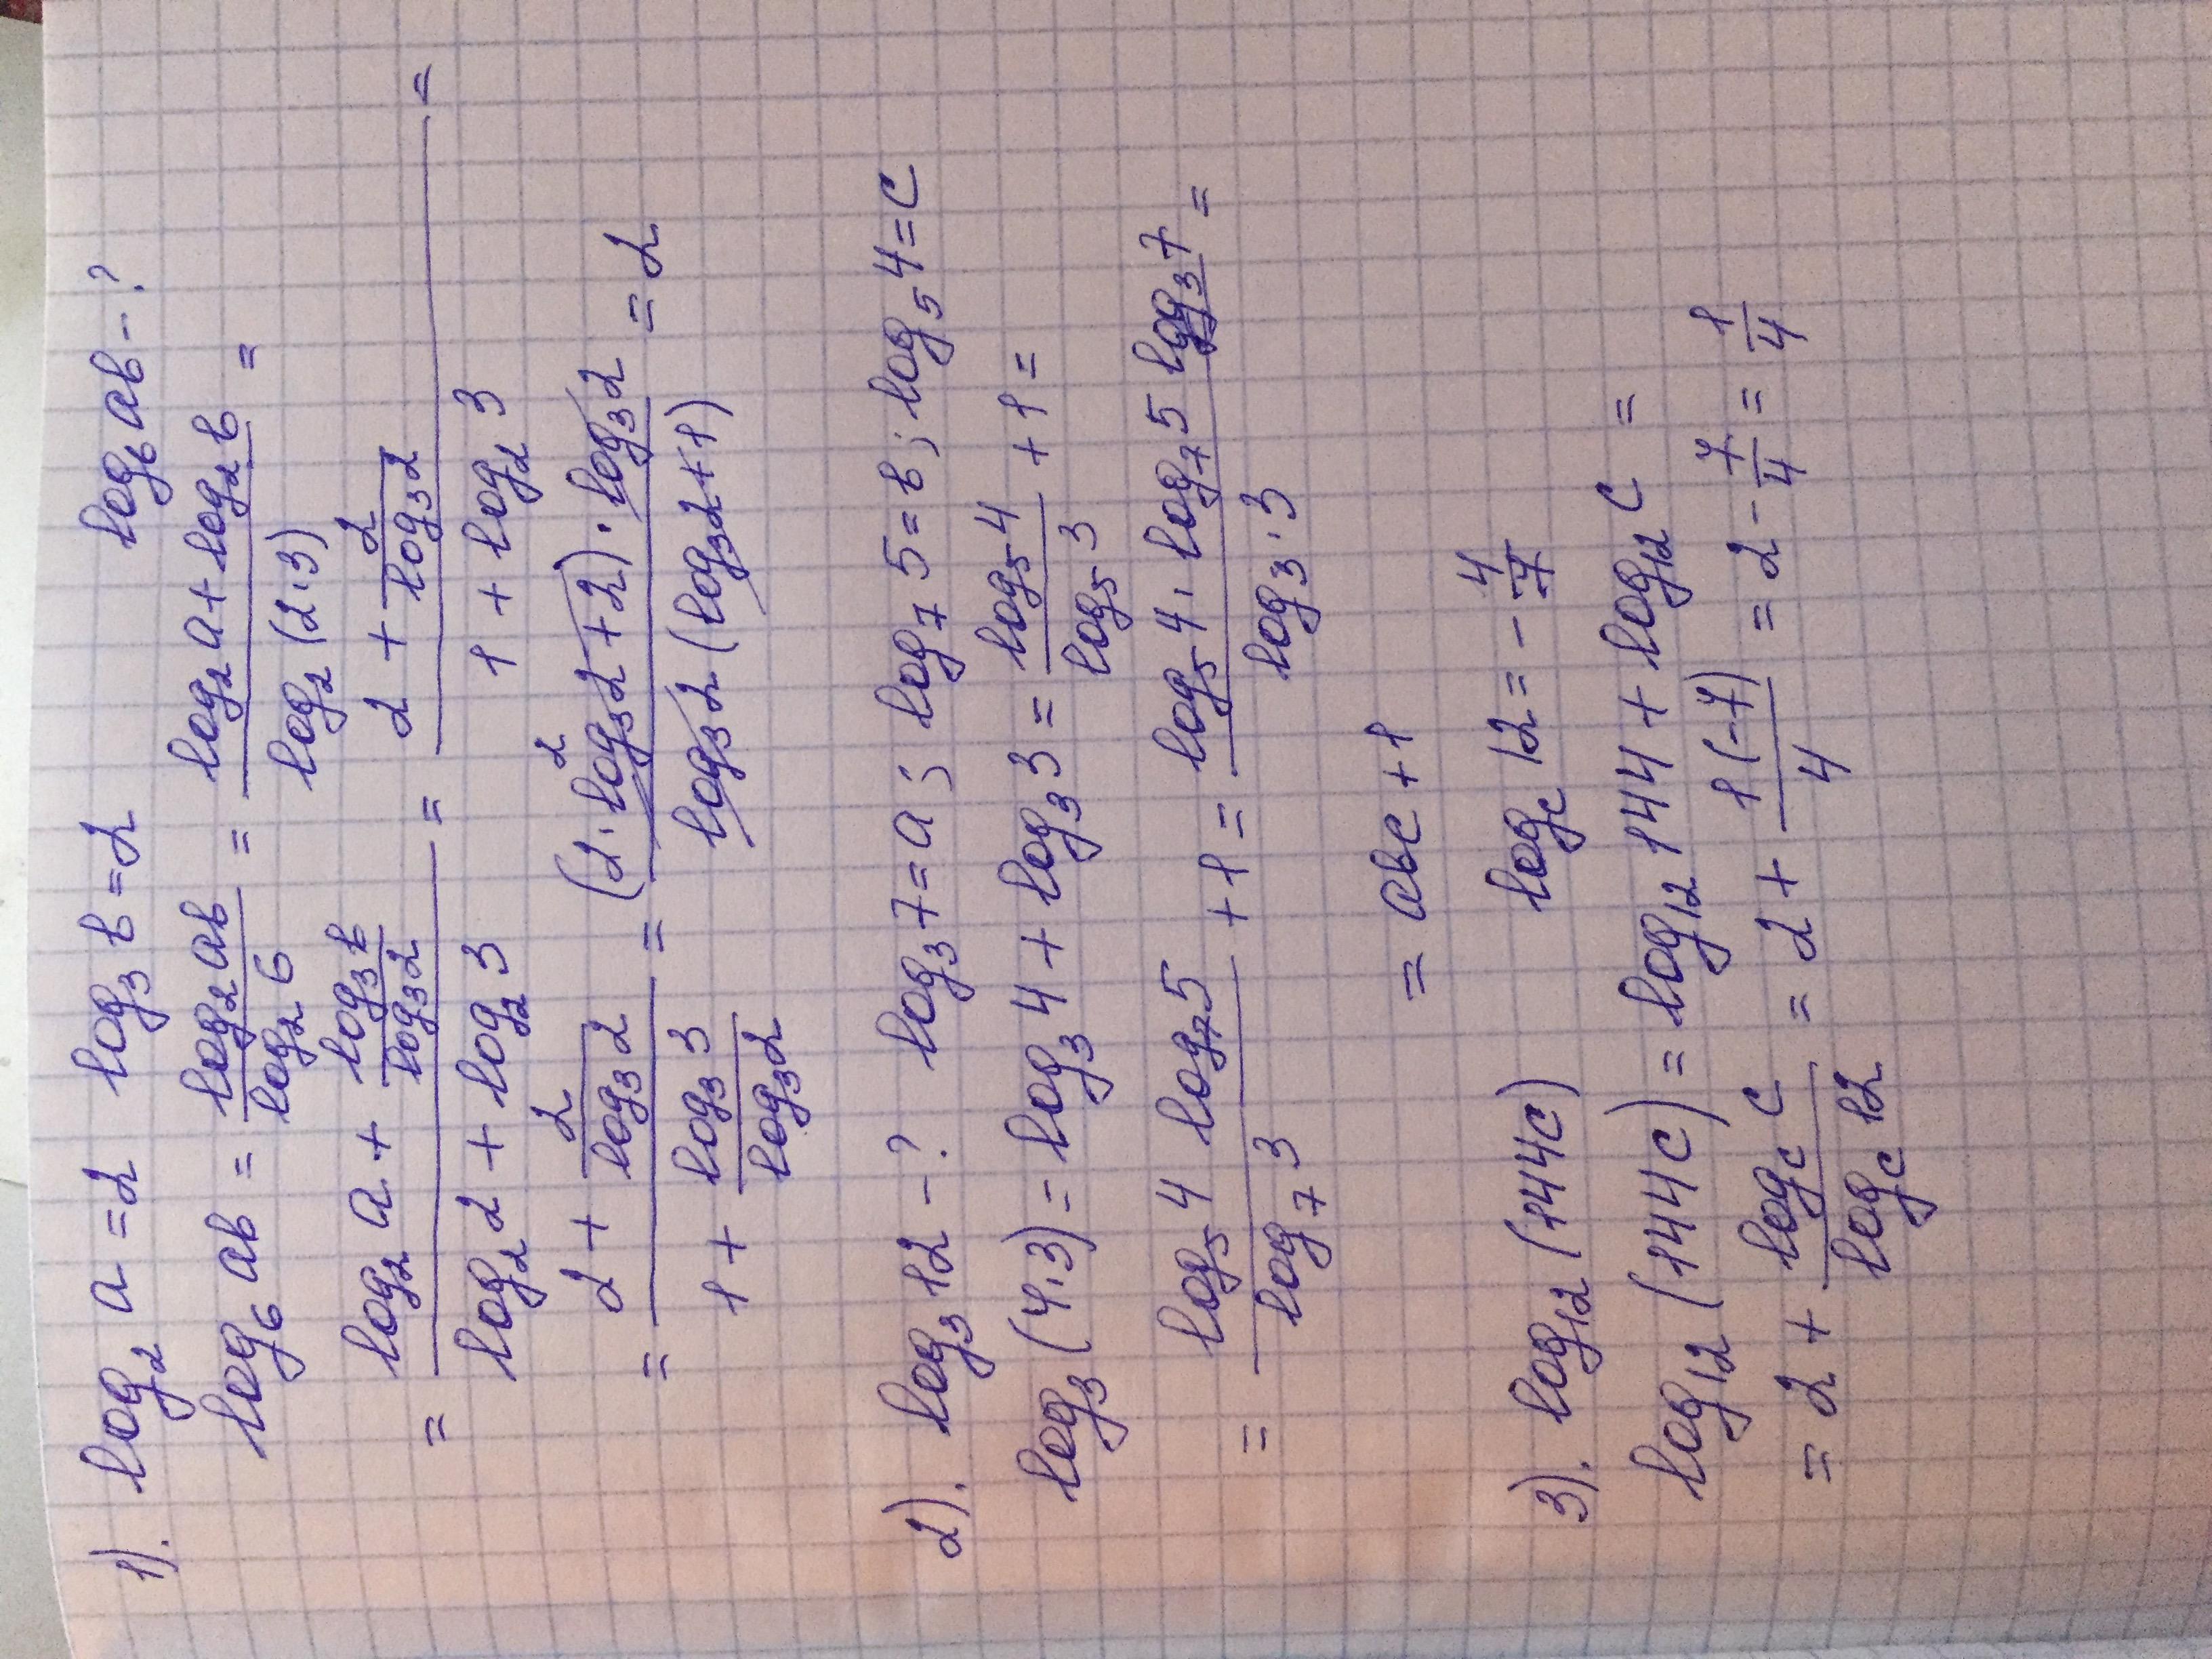 1). log₂ a = 2 log₃ b = 2 log₆ ab - ?
log₆ ab = log₂ ab / log₂ 6 = (log₂ a + log₂ b) / log₂ (2·3) =
= (log₂ a + log₃ b / log₃ 2) / (log₂ 2 + log₂ 3) = (2 + 2 / log₃ 2) / (1 + log₂ 3) =
= (2 + 2 / log₃ 2) / (1 + log₃ 3 / log₃ 2) = (2·log₃ 2 + 2)·log₃ 2 / log₃ 2 (log₃ 2 + 1) = 2
2). log₃ 12 - ? log₃ 7 = a; log₇ 5 = b; log₅ 4 = c
log₃ (4·3) = log₃ 4 + log₃ 3 = log₅ 4 / log₅ 3 + 1 =
= log₅ 4 log₇ 5 / log₇ 3 + 1 = log₅ 4 · log₇ 5 log₃ 7 / log₃ · 3 =
= abc + 1
3). log₁₂ (144c) log_c 12 = - 4/7
log₁₂ (144c) = log₁₂ 144 + log₁₂ c =
= 2 + log_c c / log_c 12 = 2 + 1(-7) / 4 = 2 - 7/4 = 1/4